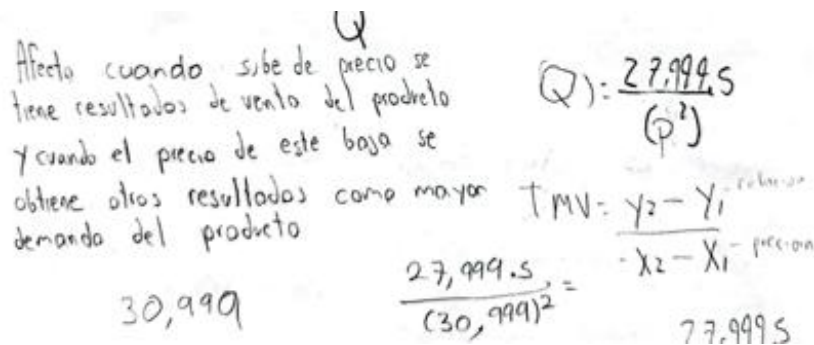 Q
Afecta cuando sube de precio se
tiene resultados de venta del producto
y cuando el precio de este baja se
obtiene otros resultados como mayor
demanda del producto
30,999
Q): 27,999.5
(p²)
TMV: y2 - y1
x2 - x1
27,999.5 =
(30,999)²
27,999.5